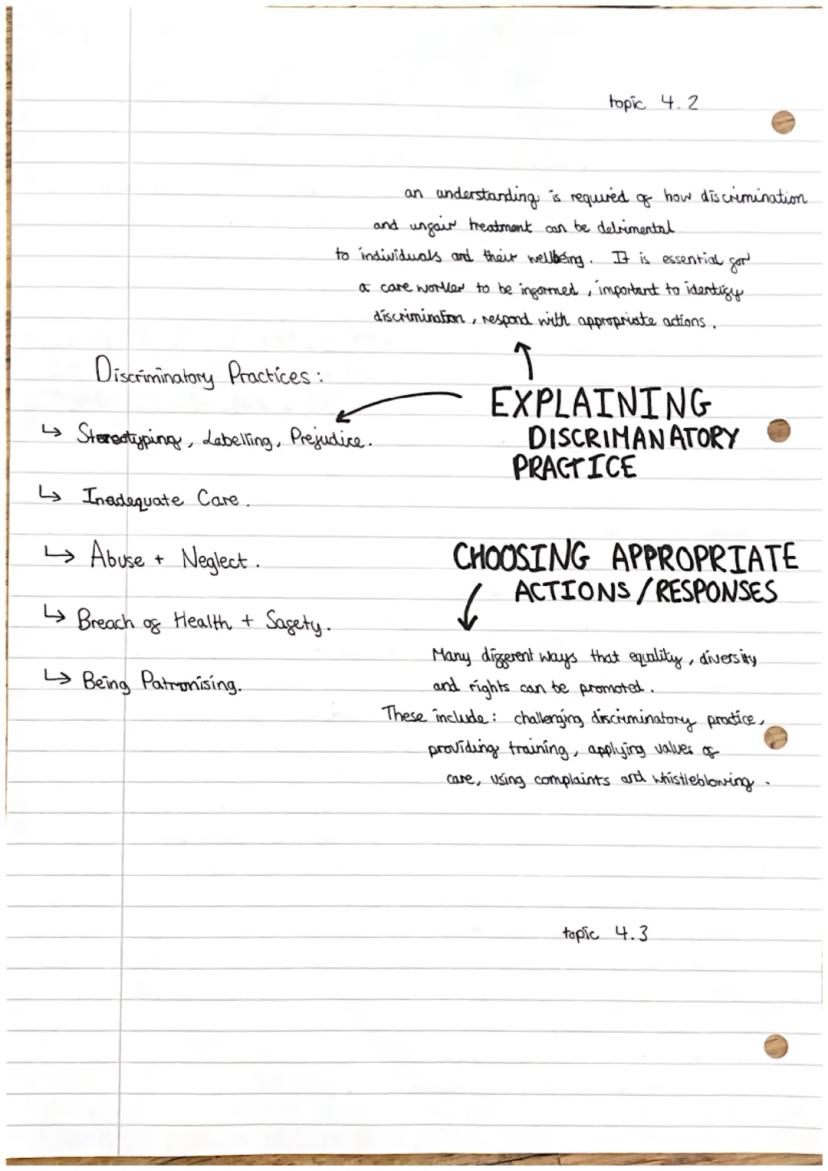 topic 4.2
an understanding is required of how discrimination
and unfair treatment can be detrimental
to individuals and their wellbeing. It is essential for
a care worker to be informed, important to identify
discrimination, respond with appropriate actions.
Discriminatory Practices:
EXPLAINING
DISCRIMANATORY
PRACTICE
↳ Stereotyping, Labelling, Prejudice.
↳ Inadequate Care.
↳ Abuse + Neglect.
↳ Breach of Health + Safety.
↳ Being Patronising.
CHOOSING APPROPRIATE
ACTIONS/RESPONSES
Many different ways that equality, diversity
and rights can be promoted.
These include: challenging discriminatory practice,
providing training, applying values of
care, using complaints and whistleblowing.
topic 4.3